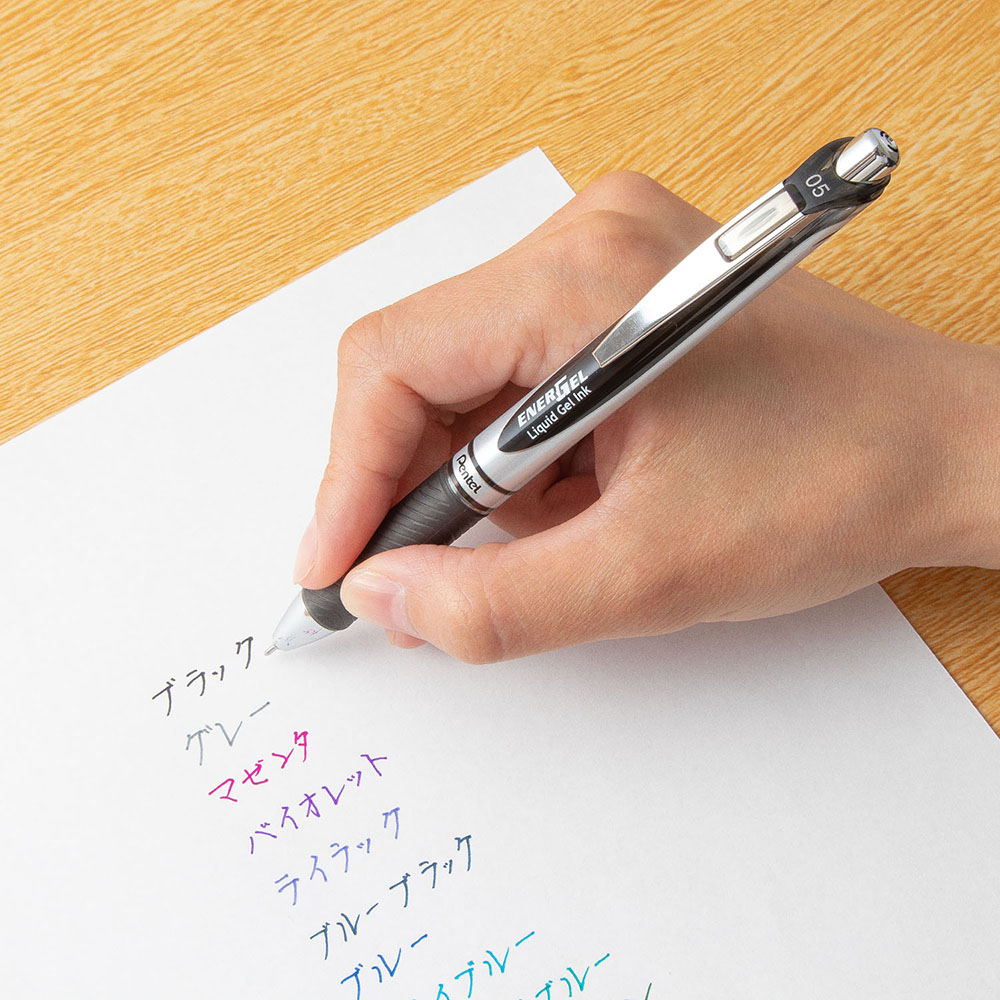 05
ENERGEL
Liquid Gel Ink
Pentel
ブラック
グレー
マゼンタ
バイオレット
ライラック
ブルーブラック
ブルー
イブルー
ブルー